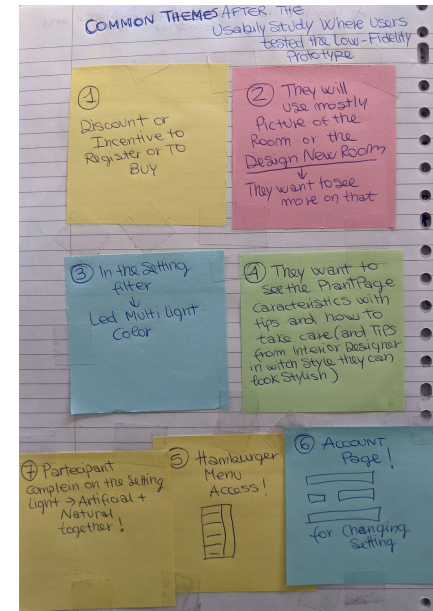 COMMON THEMES AFTER THE
Usabily Study Where users
tested the Low-Fidelity
Prototype
1
Discount or
Incentive to
Register or TO
BUY
2 They will
use mostly
Picture of the
Room or the
Design New Room
↓
They want to see
more on that
3 In the Setting
filter
↓
Led Multi Light
Color
4 They want to
see the Plant Page
caracteristics with
tips and how to
take care (and Tips
from Interior Designer
in witch style they can
look stylish)
7 Partecipant
complein on the setting
light → Artificial +
Natural
together!
5 Hamburger
Menu
Access!
6 ACCOUNT
Page!
for Changing
Setting